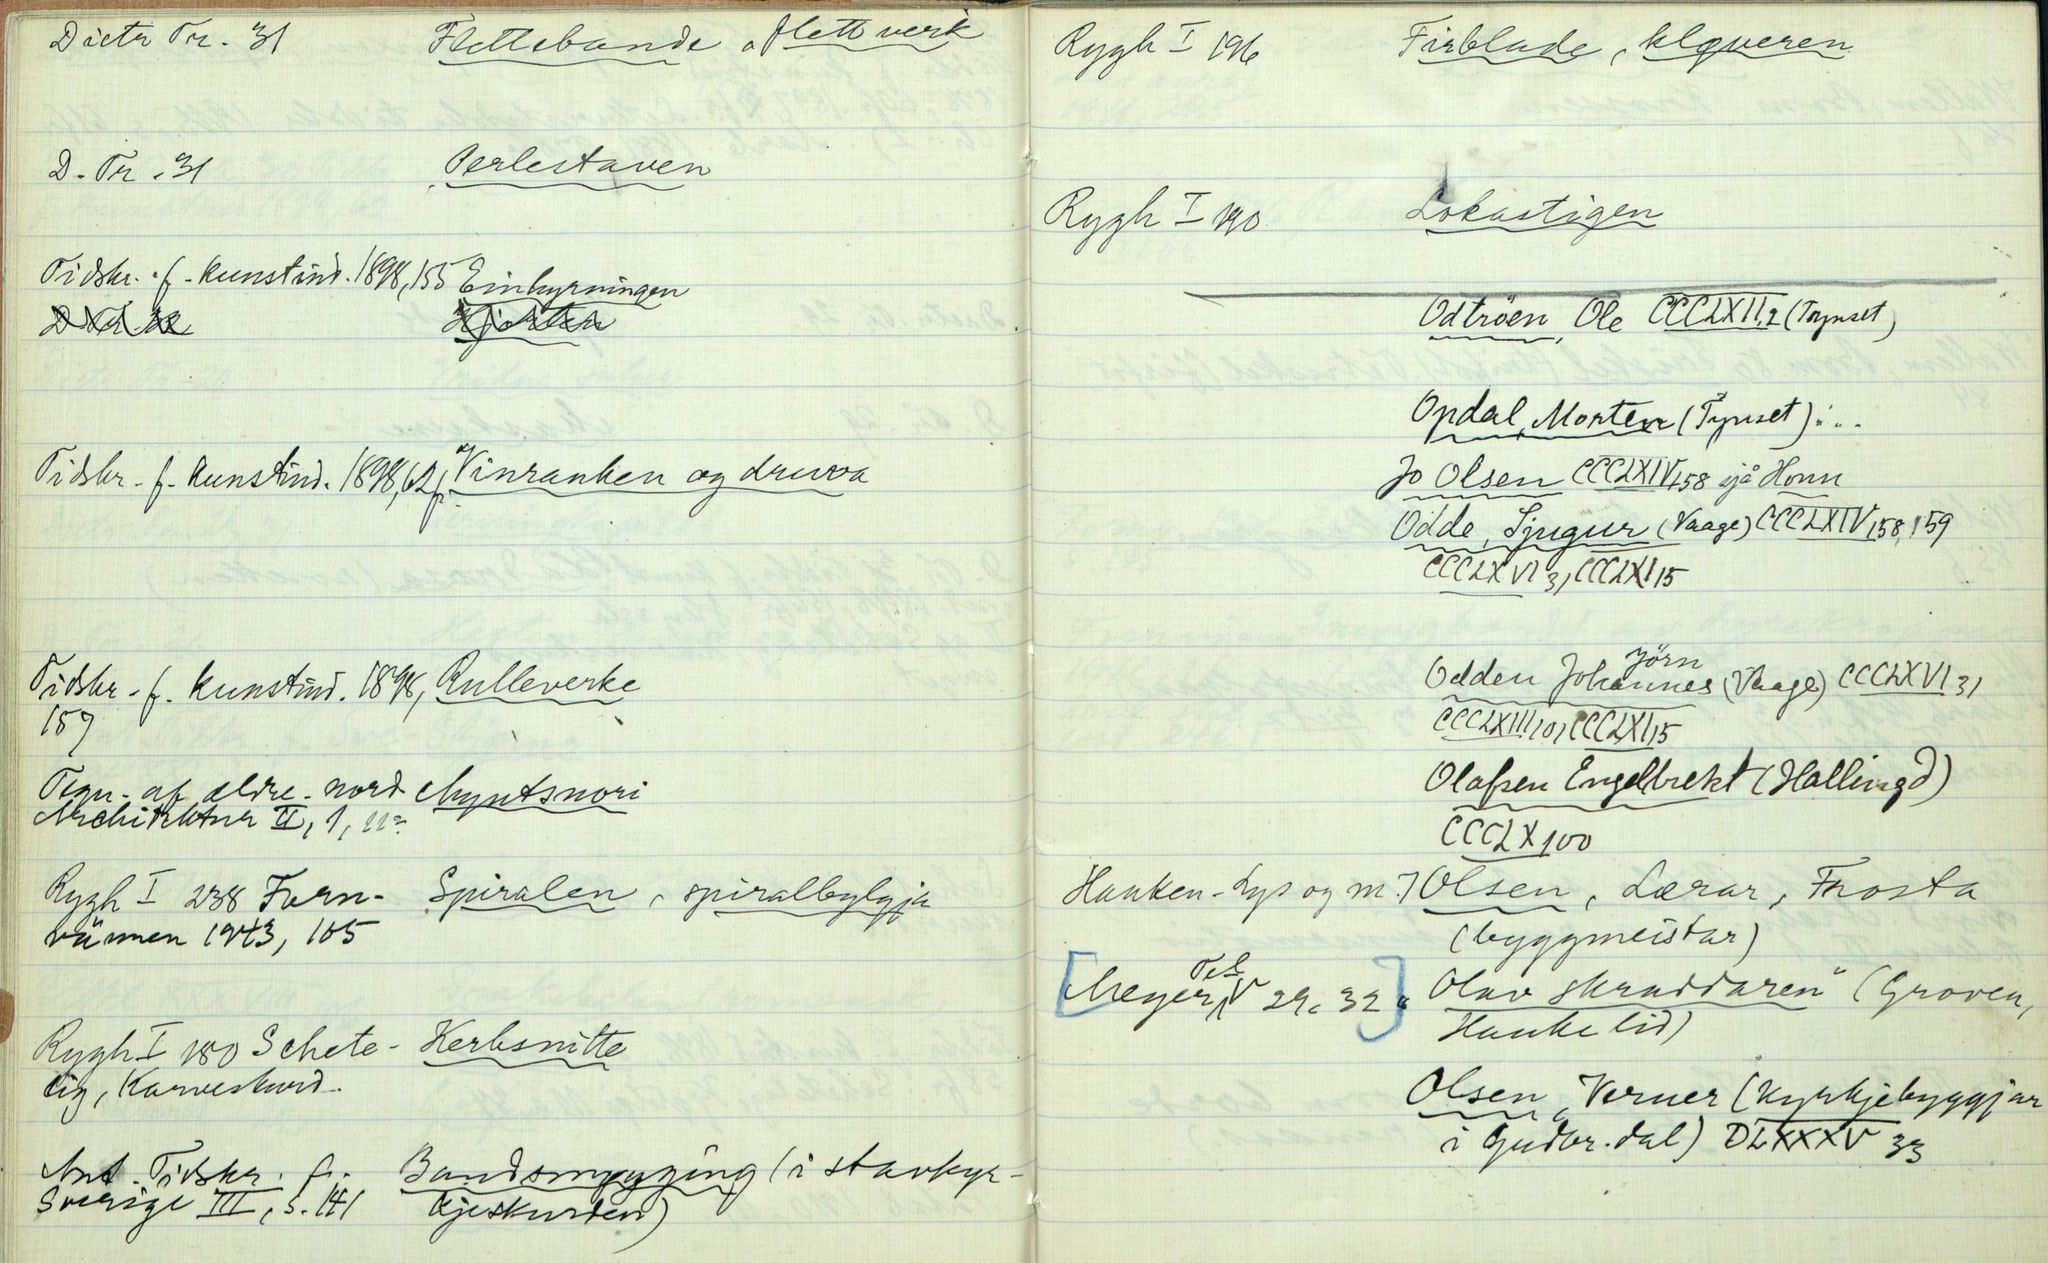 Dietr Tr. 31 Flettebande, flettverk
D. Tr. 31 Perlestaven
Tidskr. f. kunstind. 1898, 155 Einhyrningen
Tidskr. f. kunstind. 1898, 62 f. Vinranken og druva
Tidskr. f. kunstind. 1898, Rulleverke
157
Tegn. af ældre nord. Myntsnori
Architektur II, 1,
Rygh I 238 Forn- Spiralen, spiralbylgja
vännen 1943, 105
Rygh I 180 Schete- Kerbsnitte
lig, Karveskurd.
Ant. Tidskr. f. Bandsmyging (i stavkyr-
Sverige III, s. 141 kjeskurden)
Rygh I 196 Firblade, kløveren
Rygh I 190 Lokastigen
Odtröen, Ole CCCLXII,2 (Tynset)
Opdal, Morten (Tynset) :..
Jo Olsen CCCLXIV 158 sjå Honn
Odde, Sjugur (Vaage) CCCLXIV 158, 159
CCCLXVI 31, CCCLXI 15
Jörn
Odden Johannes (Vaage) CCCLXVI 31
CCCLXIII 101, CCCLXI 15
Olafsen Engelbrekt (Hallingd)
CCCLX 100
Hauken-Lys og m.) Olsen, Lærar, Frosta
(byggmeistar)
[Meyer, Tel V 29, 32] "Olav skraddaren" (Groven,
Haukelid)
Olsen, Verner (kyrkjebyggjar
i Gudbr.dal) DLXXXV 33